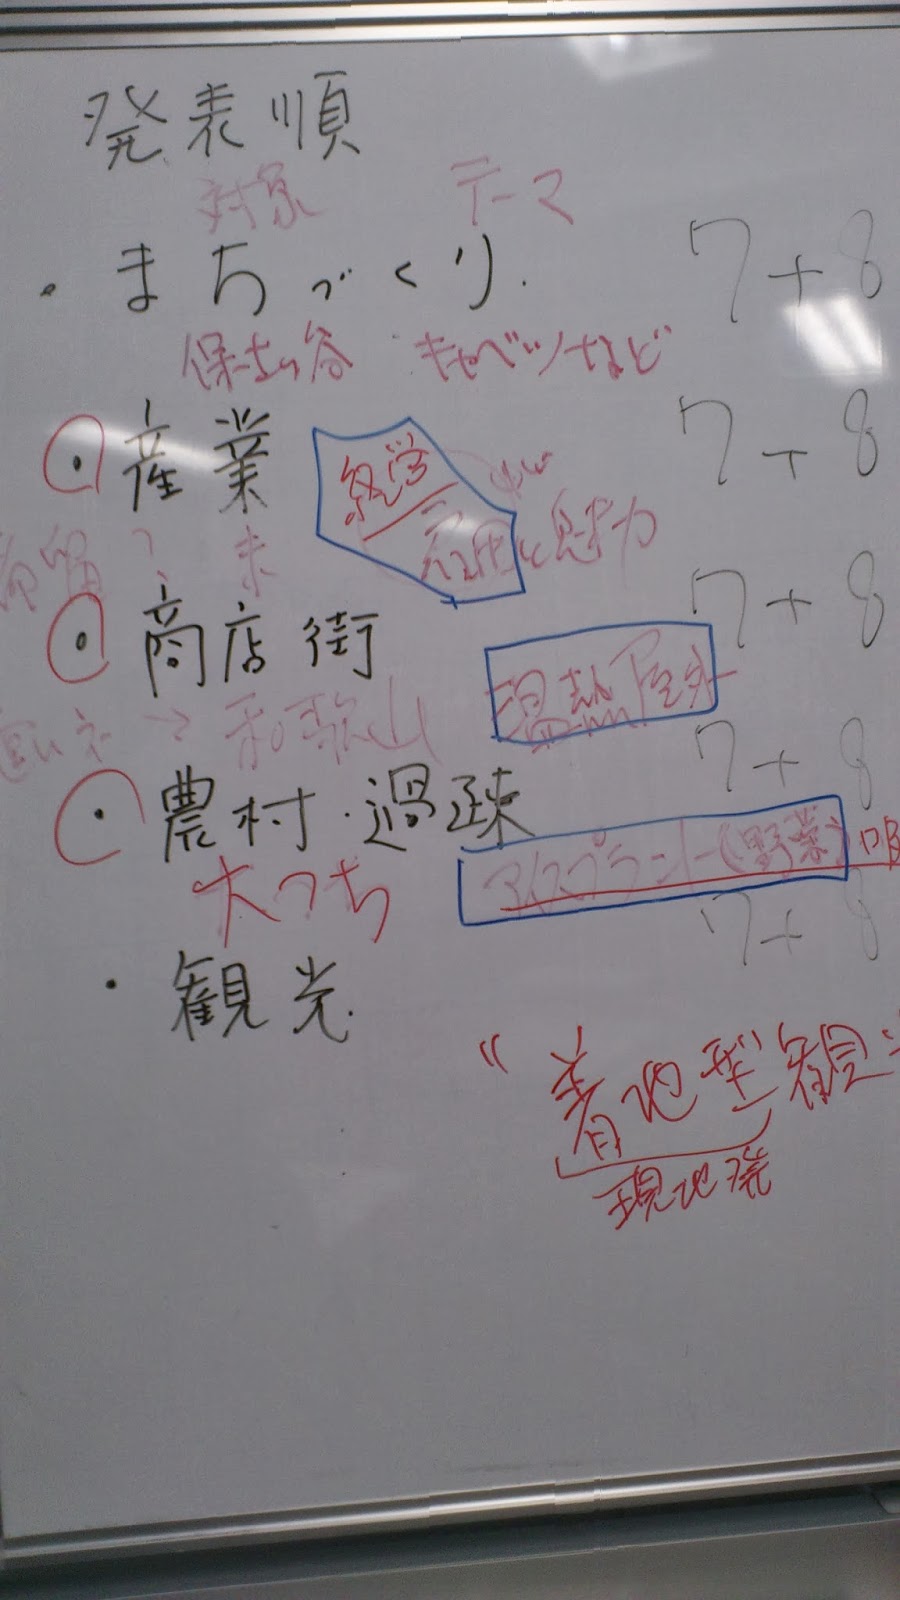 発表順
対象 テーマ
・まちづくり. 7+8
保土ヶ谷 キャベツなど
・産業 経営 7+8
雇用と魅力
・商店街 7+8
温熱 屋外
→和歌山 7+8
・農村・過疎
アイスプラント(野菜)
大つち 7+8
・観光.
"着地型"観
現地発